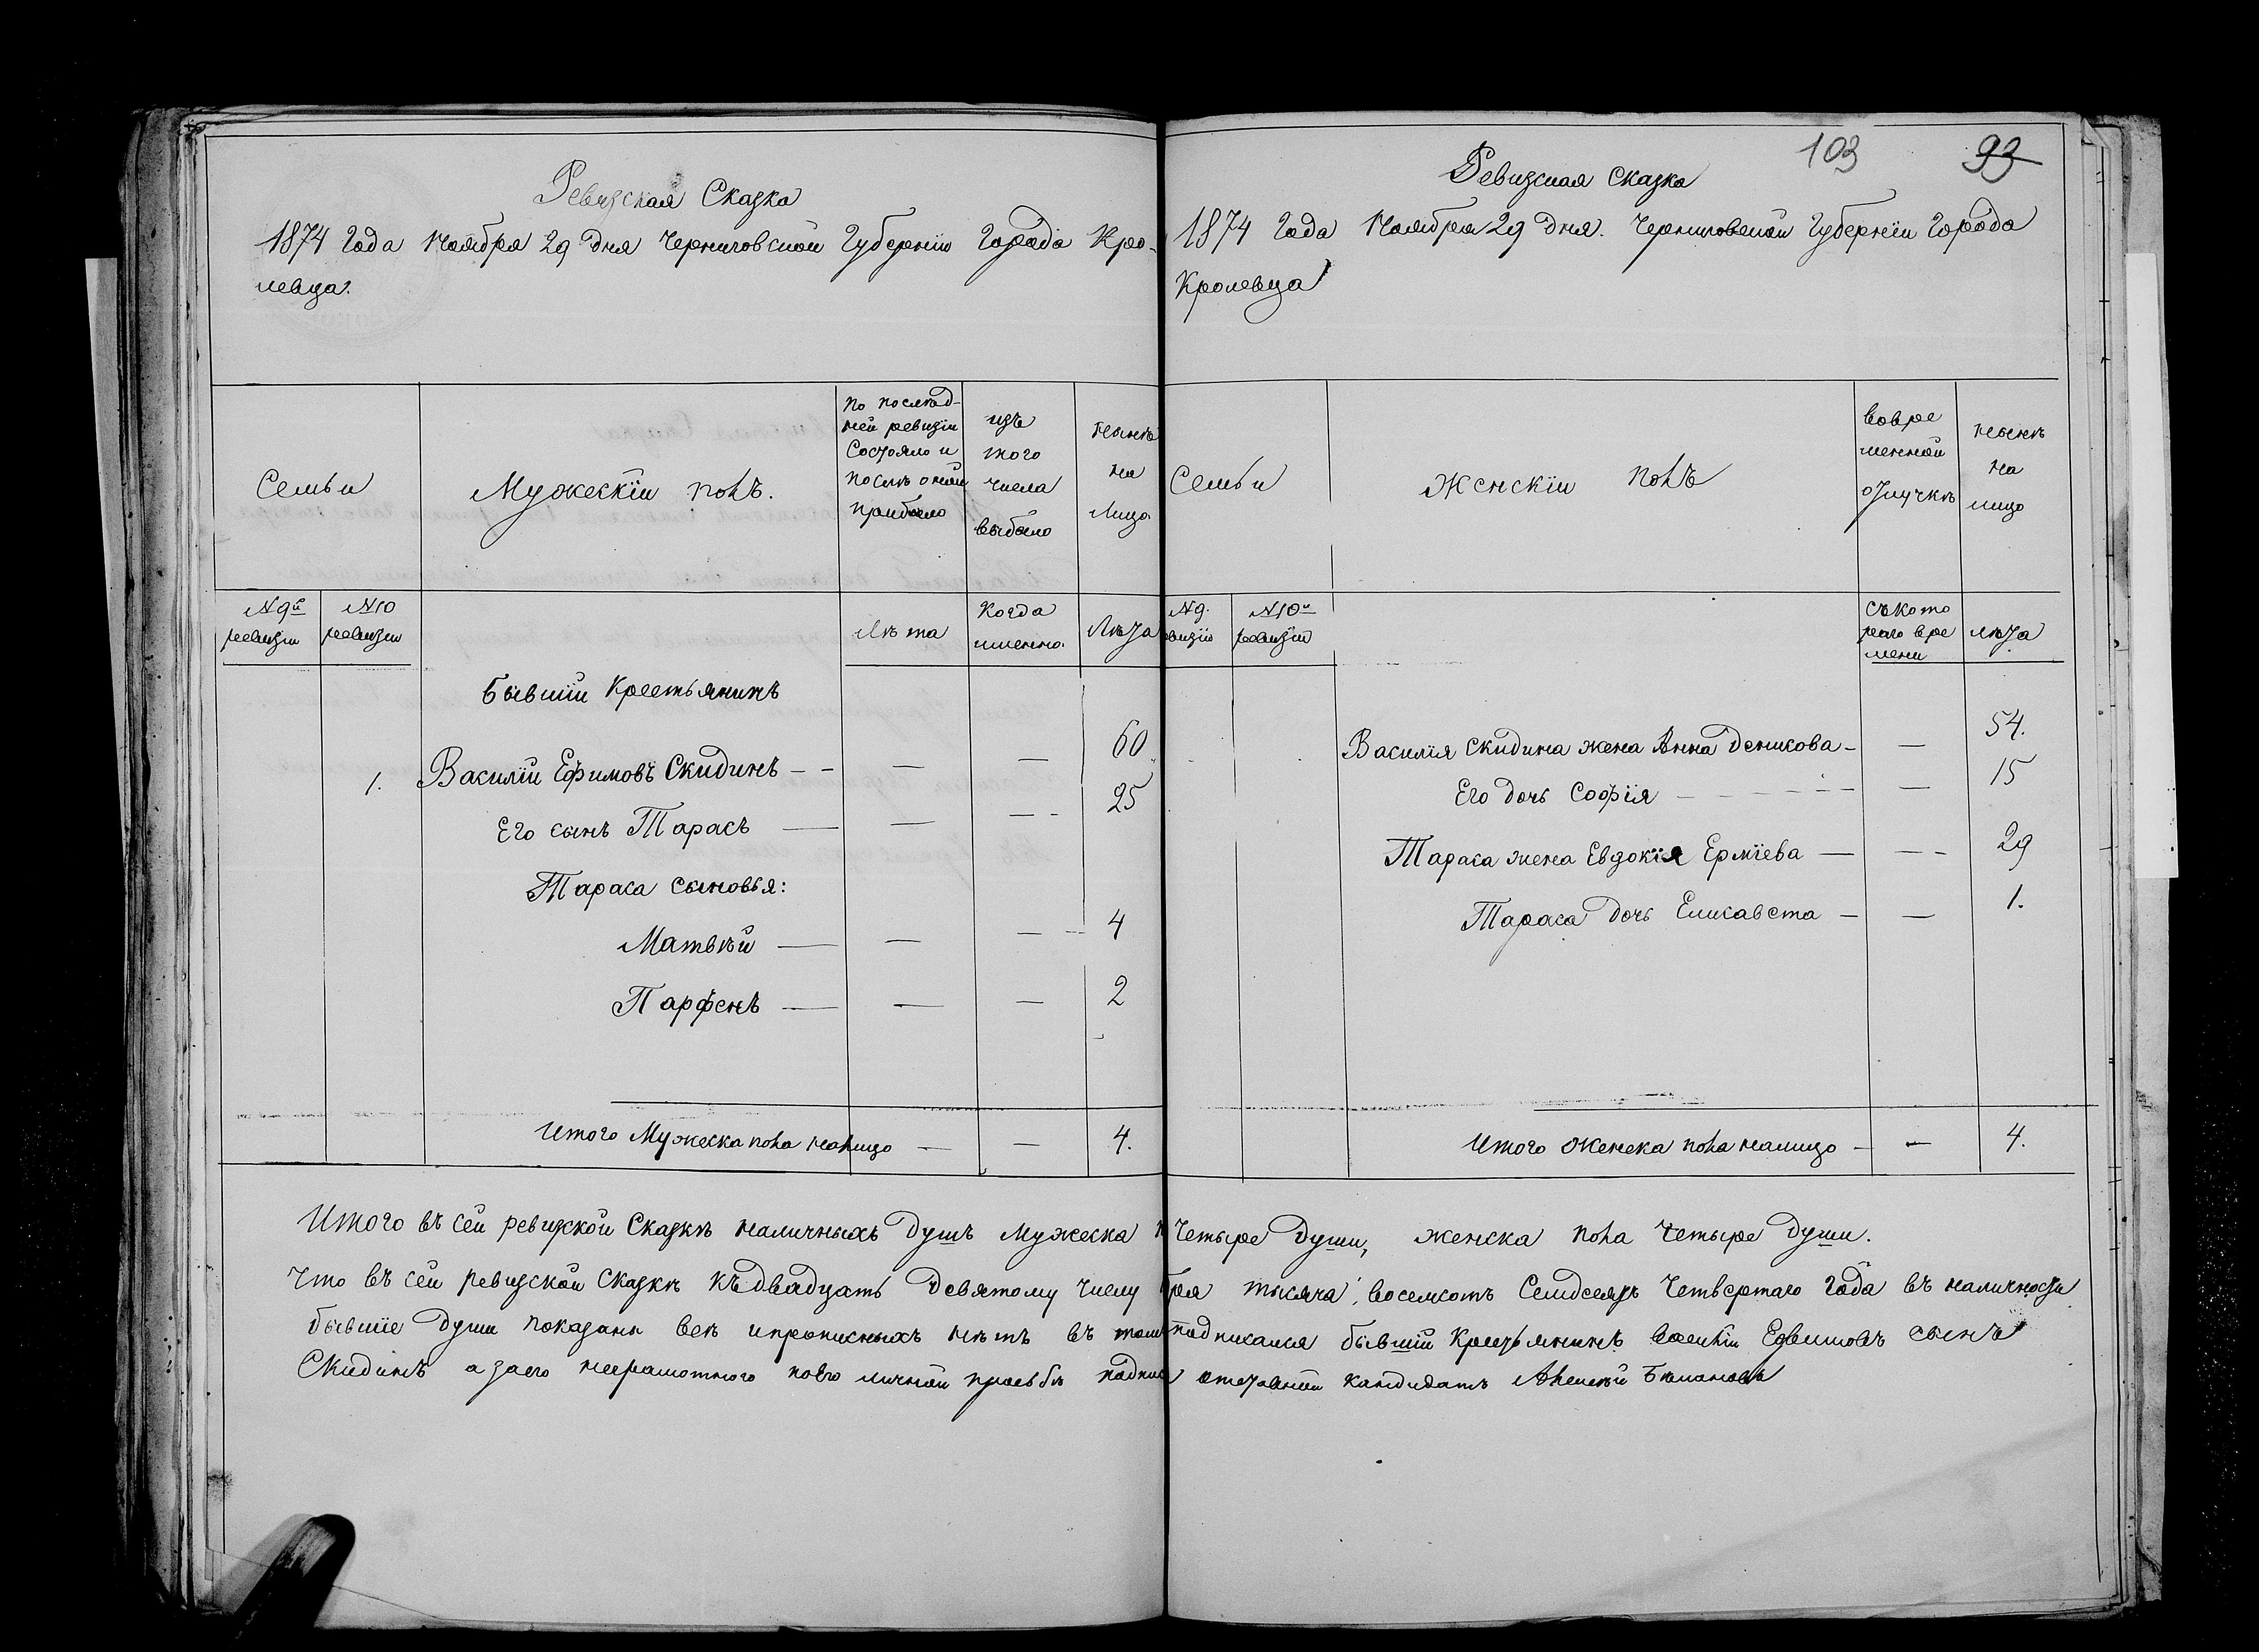 Ревизская Сказка
1874 Года Ноября 29 Дня Черниговской Губернiи Города Кро-
левца.
Семьи
Мужескiй полъ.
По послѣд-
ней ревизiи
Состояло и
послѣ оной
прибыло
изъ
того
числа
выбыло
Нынѣ
на
Лицо
№ 9й
ревизiи
№ 10
ревизiи
Лѣта
Когда
именно.
Лѣта
Бывшiй Крестьянинъ
1. Василiй Ефимовъ Скидинъ - - — — 60
Его сынъ Тарасъ — — — - 25
Тараса сыновья:
Матвѣй — — — - 4
Парфенъ — — — 2
Итого Мужеска пола налицо — — 4.
Итого въ сей ревизской Сказкѣ наличныхъ Душъ Мужеска
Что въ сей ревизской Сказкѣ къ двадцать девятому числу
бывшiе Души показаны всѣ и прописныхъ нѣтъ въ
Скидинъ а за его неграмотного по его личной прозьбѣ
103 93
Ревизская Сказка
1874 Года Ноября 29 Дня. Черниговской Губернiи Города
Кролевца
Семьи
Женскiй полъ
во вре
менной
отлучкѣ
нынѣ
на
лицо
№ 9.
№ 10й
ревизiи
съ кото
раго вре
мени
лѣта
Василiя Скидина жена Анна Денисова - — 54.
Его дочь Софiя - - - - - — 15
Тараса жена Евдокiя Ермiева — — - 29
Тараса Дочь Елисавета — — 1.
Итого Женска пола налицо — — 4.
Четыре Души, женска пола Четыре Души.
тысяча восемсотъ Семдесятъ Четвертаго Года въ наличности
подписался бывшiй Крестьянинъ Василiй Ефимовъ сынъ
Кандидатъ Алексѣй